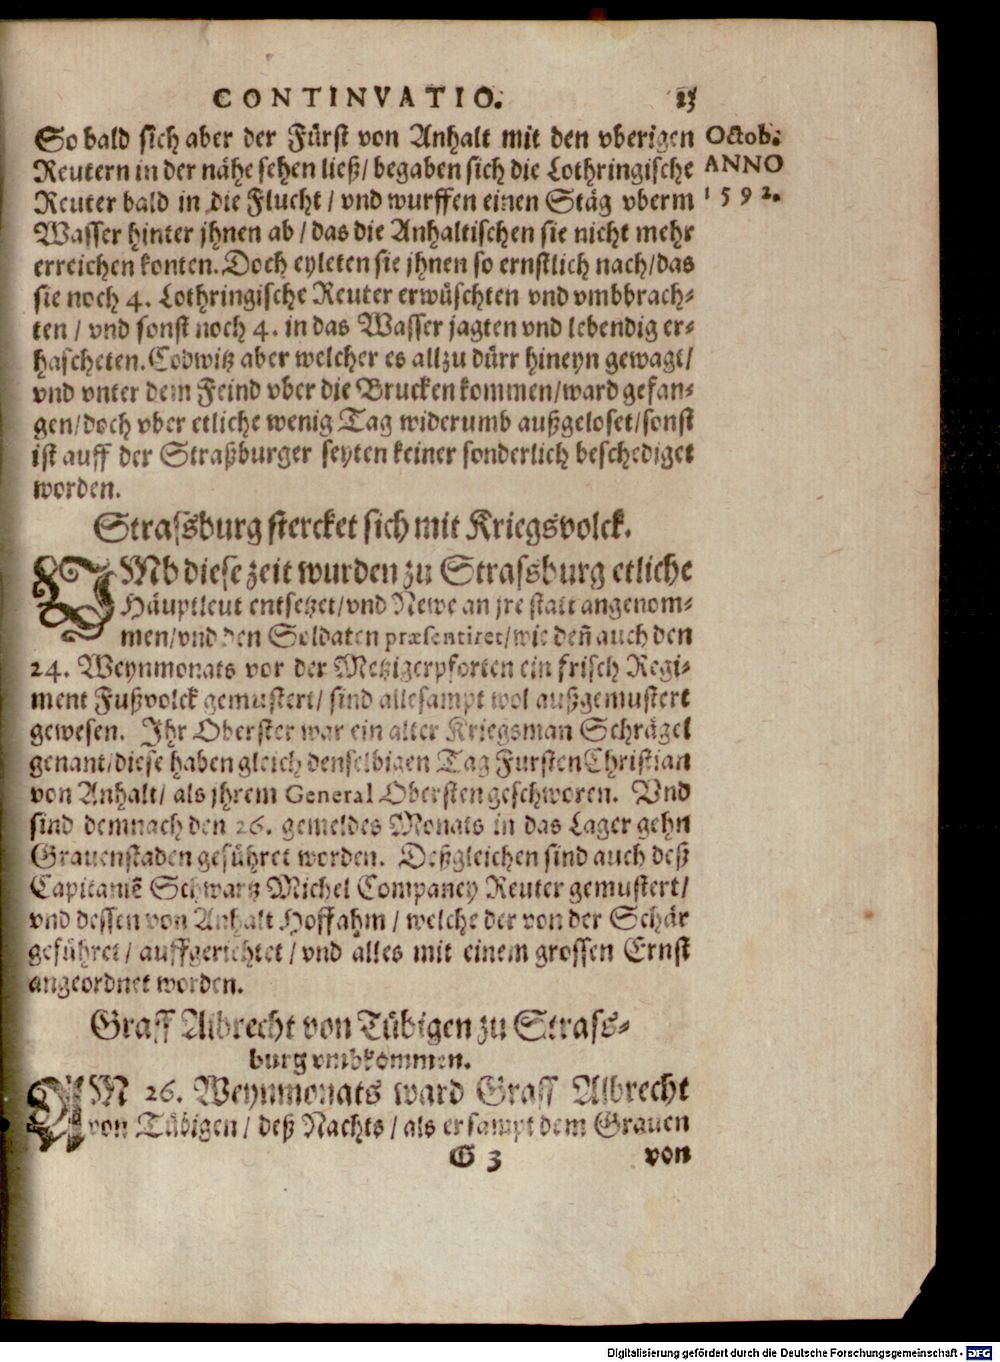 CONTINVATIO. 23
So bald sich aber der Fürst von Anhalt mit den vberigen Octob:
Reutern in der nähe sehen ließ/ begaben sich die Lothringische ANNO
Reuter bald in die Flucht/ vnd wurffen einen Stäg vberm 1592.
Wasser hinter jhnen ab/ das die Anhaltischen sie nicht mehr
erreichen konten. Doch eyleten sie jhnen so ernstlich nach/ das
sie noch 4. Lothringische Reuter erwüschten vnd vmbbrach-
ten/ vnd sonst noch 4. in das Wasser jagten vnd lebendig er-
hascheten. Codwitz aber welcher es allzu dürr hineyn gewagt/
vnd vnter dem Feind vber die Brucken kommen/ ward gefan-
gen/ doch vber etliche wenig Tag widerumb außgeloset/ sonst
ist auff der Straßburger seyten keiner sonderlich beschediget
worden.
Strassburg stercket sich mit Kriegsvolck.
VMb diese zeit wurden zu Strassburg etliche
Häuptleut entsetzet/ vnd Newe an jre statt angenom-
men/ vnd den Soldaten præsentiret/ wie deñ auch den
24. Weynmonats vor der Metzigerpforten ein frisch Regi-
ment Fußvolck gemustert/ sind allesampt wol außgemustert
gewesen. Ihr Oberster war ein alter Kriegsman Schrägel
genant/ diese haben gleich denselbigen Tag Fursten Christian
von Anhalt/ als jhrem General Obersten geschworen. Vnd
sind demnach den 26. gemeldes Monats in das Lager gehn
Grauenstaden geführet worden. Deßgleichen sind auch deß
Capitamẽ Schwartz Michel Companey Reuter gemustert/
vnd dessen von Anhalt Hoffahm/ welche der von der Schär
geführet/ auffgerichtet/ vnd alles mit einem grossen Ernst
angeordnet worden.
Graff Albrecht von Tübigen zu Strass-
burg vmbkommen.
AM 26. Weynmonats ward Graff Albrecht
von Tübigen/ deß Nachts/ als er sampt dem Grauen
G 3 von
Digitalisierung gefördert durch die Deutsche Forschungsgemeinschaft - DFG